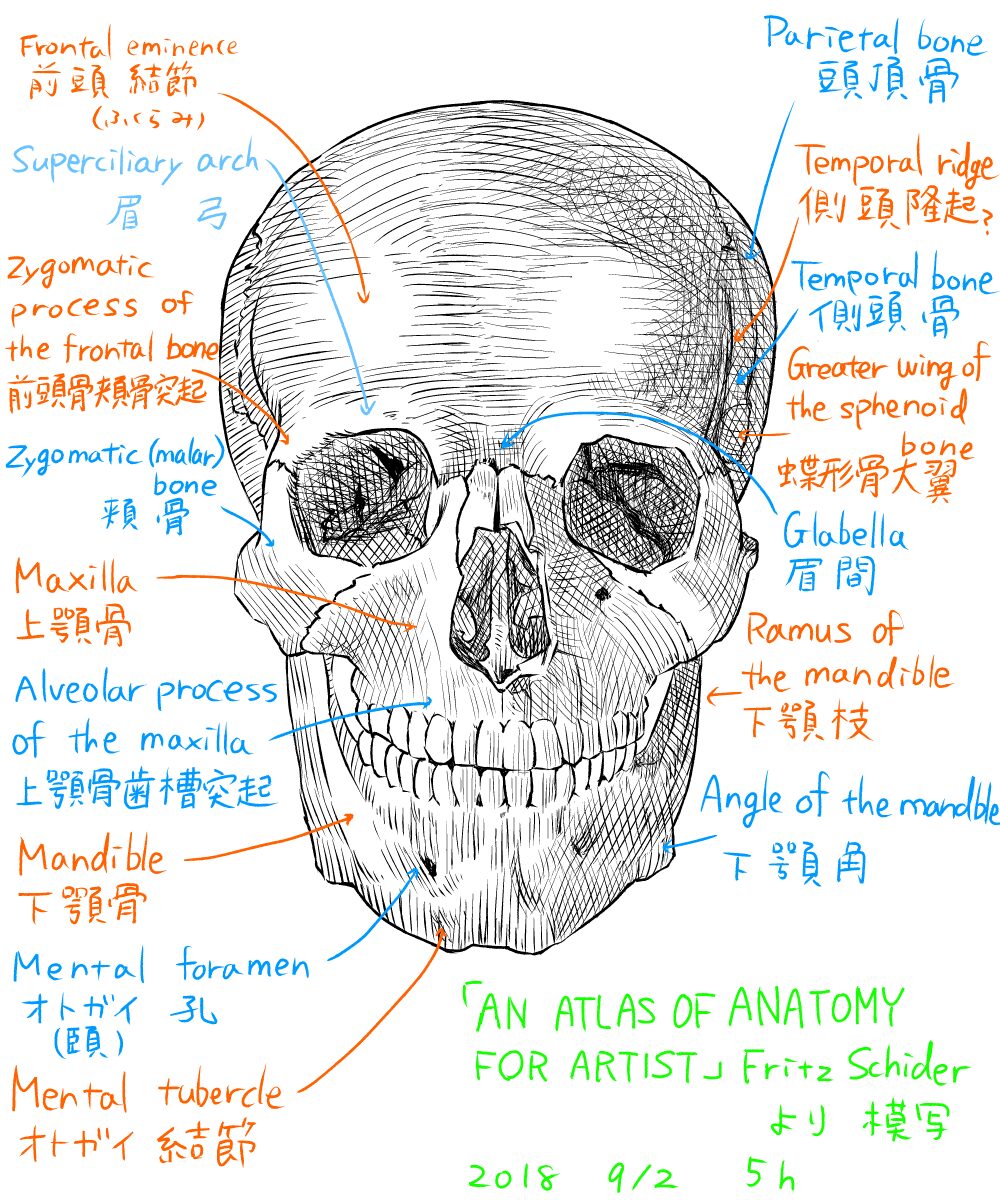 Frontal eminence
前頭 結節
(ふくらみ)
Superciliary arch
眉 弓
Zygomatic
process of
the frontal bone
前頭骨頬骨突起
Zygomatic (malar)
bone
頬骨
Maxilla
上顎骨
Alveolar process
of the maxilla
上顎骨歯槽突起
Mandible
下顎骨
Mental foramen
オトガイ 孔
(頤)
Mental tubercle
オトガイ 結節
Parietal bone
頭頂骨
Temporal ridge
側頭隆起?
Temporal bone
側頭骨
Greater wing of
the sphenoid
bone
蝶形骨大翼
Glabella
眉間
Ramus of
the mandible
下顎枝
Angle of the mandble
下顎角
「AN ATLAS OF ANATOMY
FOR ARTIST」 Fritz Schider
より 模写
2018 9/2 5h